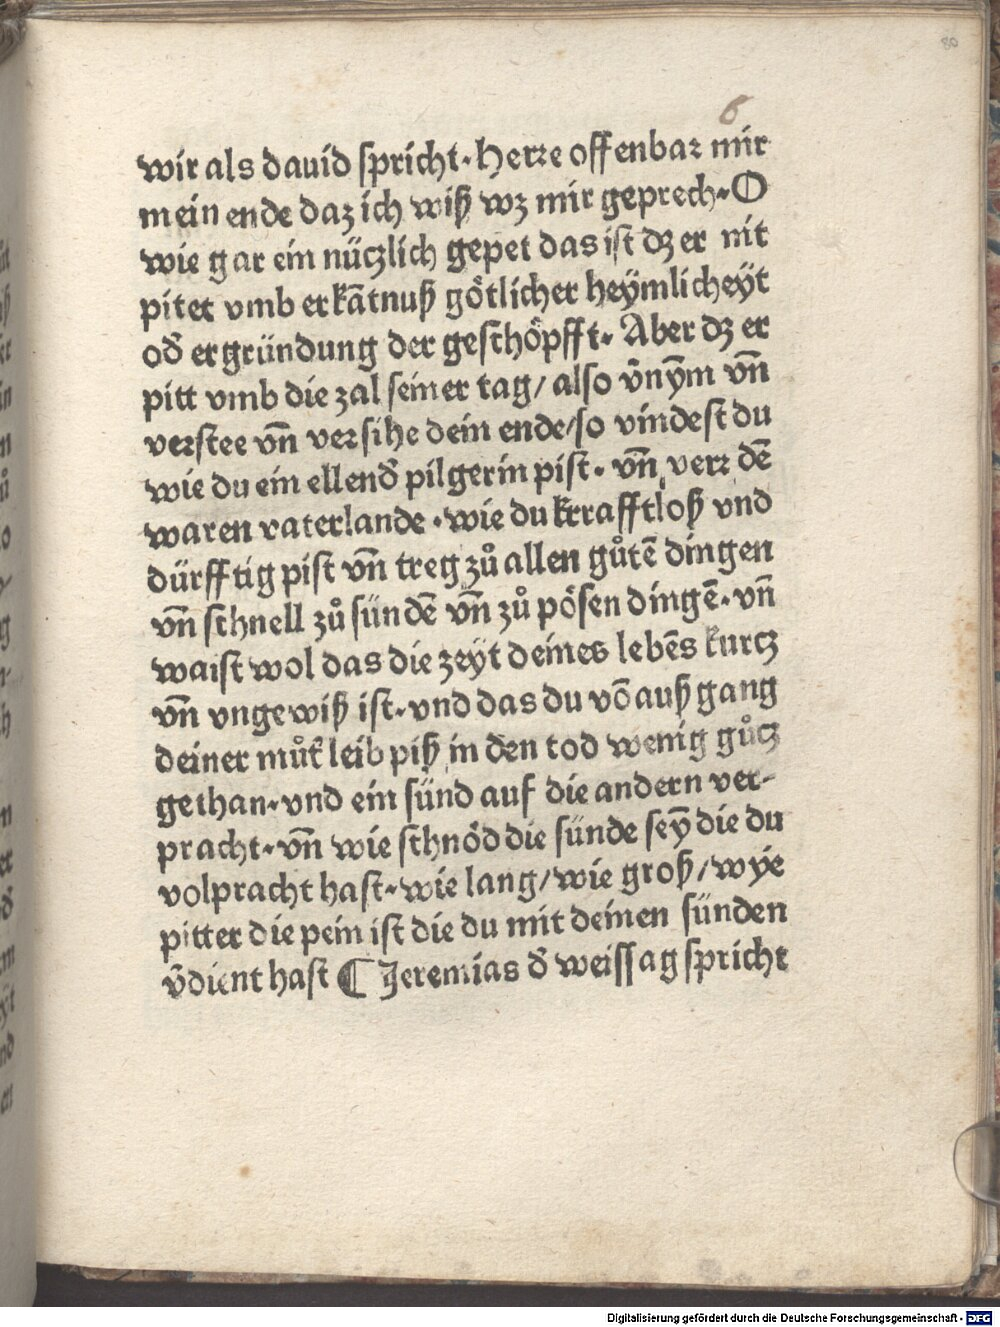 80
6
wir als dauid spricht. Herre offenbar mir
mein ende daz ich wiß wz mir geprech. O
wie gar ein nüczlich gepet das ist dz er nit
pitet vmb erkātnuß götlicher heÿmlicheÿt
od̄ ergründung der geschöpfft. Aber dz er
pitt vmb die zal seiner tag/ also v̄nÿm vn̄
verstee vn̄ versihe dein ende/so vindest du
wie du ein ellend̄ pilgerin pist. vn̄ verr dē
waren vaterlande. wie du krrafftloß vnd
dürfftig pist vn̄ treg zů allen gůtē dingen
vn̄ schnell zů sündē vn̄ zů pösen dingē. vn̄
waist wol das die zeÿt deines lebēs kurcz
vn̄ vngewiß ist. vnd das du vō außgang
deiner můt̄ leib piß in den tod wenig gůcz
gethan. vnd ein sünd auf die andern ver-
pracht. vn̄ wie schnöd die sünde seȳ die du
volpracht hast. wie lang/wie groß/wÿe
pitter die pein ist die du mit deinen sünden
v̄dient hast ¶ Jeremias d̄ weissag spricht
Digitalisierung gefördert durch die Deutsche Forschungsgemeinschaft - DFG